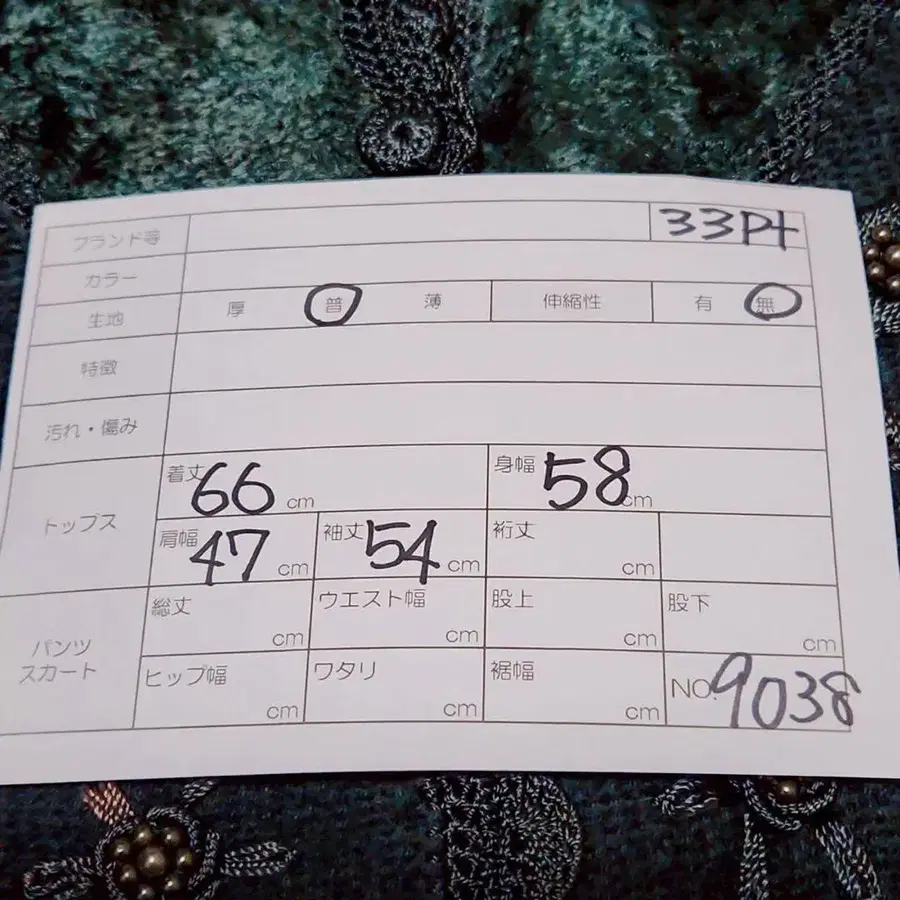 ブランド等 33Pt
カラー
生地 厚 普 薄 伸縮性 有 無
特徴
汚れ・傷み
トップス 着丈 66 cm 身幅 58 cm
肩幅 47 cm 袖丈 54 cm 裄丈 cm
パンツ スカート 総丈 cm ウエスト幅 cm 股上 cm 股下 cm
ヒップ幅 cm ワタリ cm 裾幅 cm NO. 9038